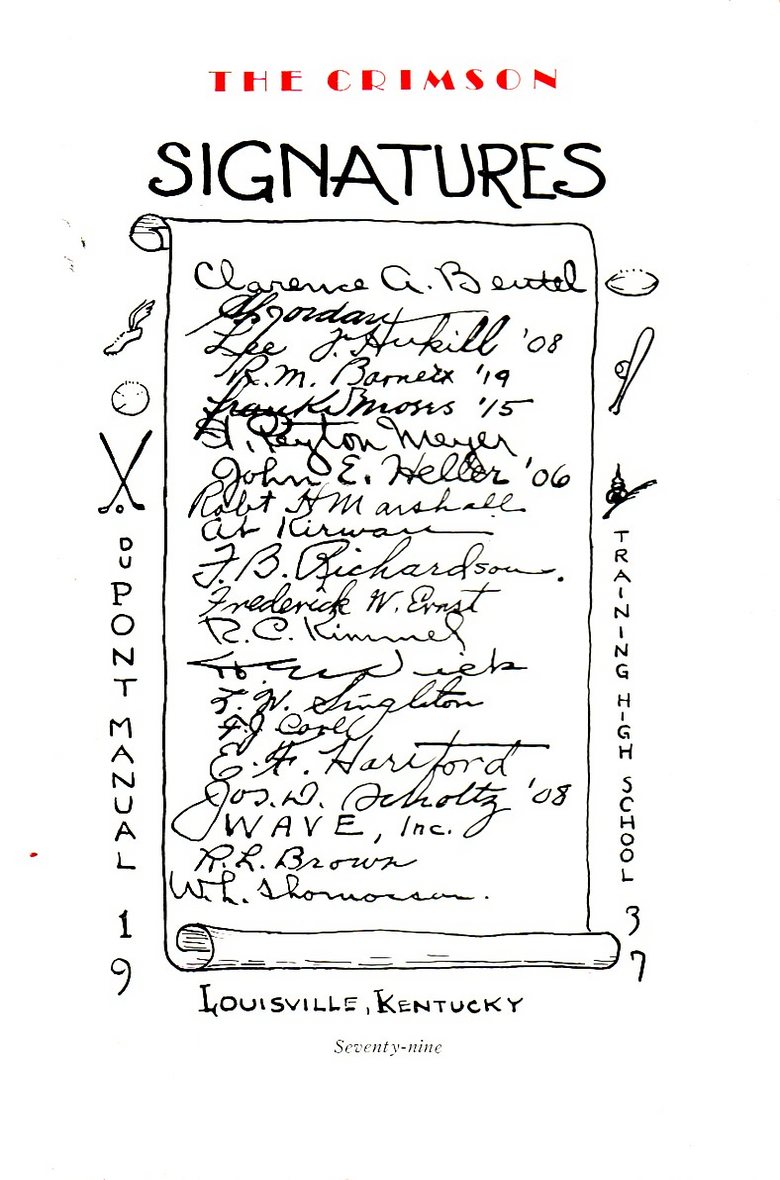 THE CRIMSON
SIGNATURES
Clarence A. Beutel
Jordan
Lee J. Hukill '08
R. M. '19
Frank Moses '15
H. Peyton Meyer
John E. Heller '06
Robt H Marshall
Ab Kirwan
F. B. Richardson.
Frederick W. Ernst
R. C. Kimmel
T. W. Singleton
F. J.
E. F. Hartford
Jos. D. Scholtz '08
WAVE, Inc.
R. L. Brown
W. L.
DU PONT MANUAL
TRAINING HIGH SCHOOL
19
37
LOUISVILLE, KENTUCKY
Seventy-nine